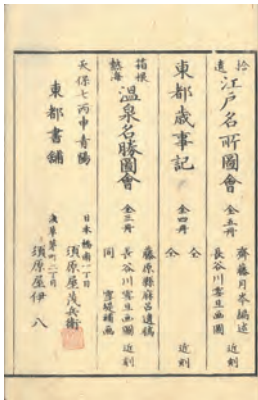 拾遺 江戸名所圖會 全五冊 齋藤月岑編述 近刻
長谷川雪旦画圖
東都歳事記 全四冊 仝 近刻
仝
箱根熱海 温泉名勝圖會 全三冊 藤原縣麻呂遺稿 近刻
長谷川雪旦画圖
同 雪堤補画
天保七丙申青陽
東都書舗
日本橋南一丁目
須原屋茂兵衛
浅草茅町二丁目
須原屋伊八